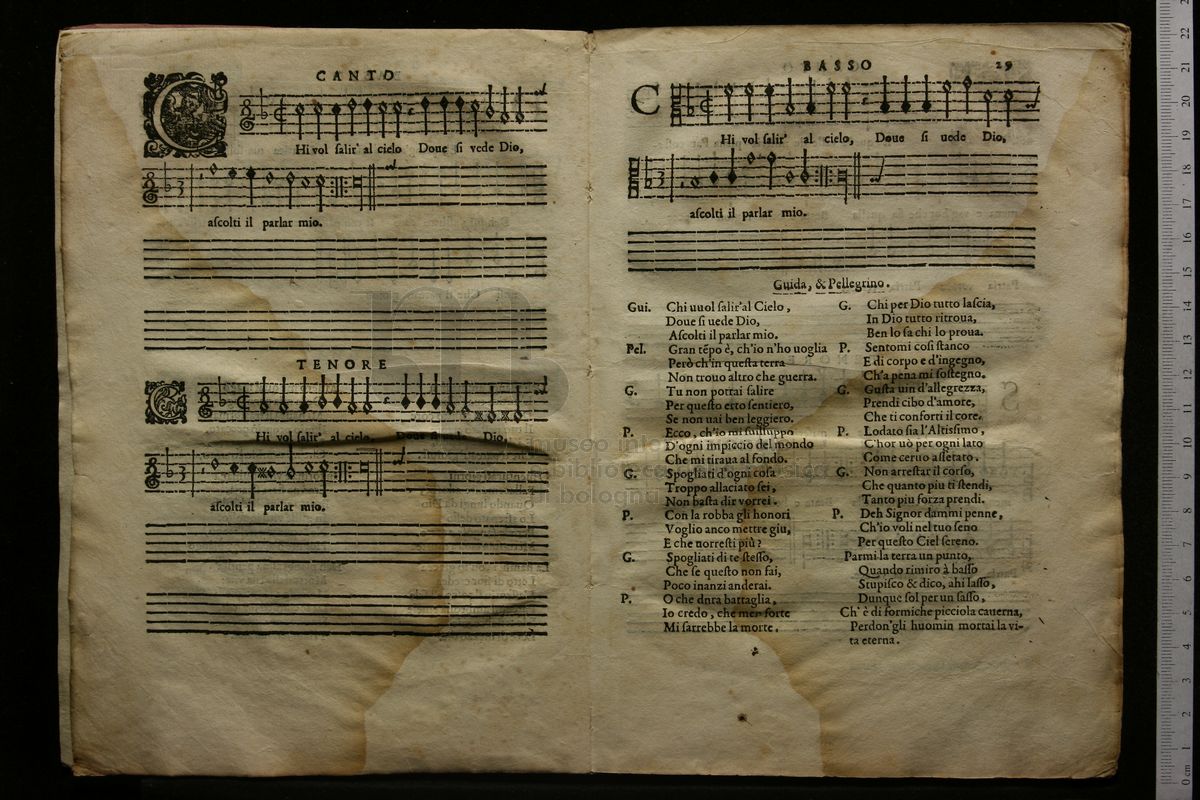 CANTO
C
Hi vol salir' al cielo Doue si vede Dio,
ascolti il parlar mio.
TENORE
C
Hi vol salir' al cielo Doue si vede Dio,
ascolti il parlar mio.
BASSO 29
C
Hi vol salir' al cielo, Doue si uede Dio,
ascolti il parlar mio.
Guida, & Pellegrino.
Gui. Chi uuol salir'al Cielo,
Doue si uede Dio,
Ascolti il parlar mio.
Pel. Gran tẽpo è, ch'io n'ho uoglia
Però ch'in questa terra
Non trouo altro che guerra.
G. Tu non potrai salire
Per questo erto sentiero,
Se non uai ben leggiero.
P. Ecco, ch'io mi suiluppo
D'ogni impiccio del mondo
Che mi tiraua al fondo.
G. Spogliati d'ogni cosa
Troppo allaciato sei,
Non basta dir vorrei.
P. Con la robba gli honori
Voglio anco mettre giu,
E che uorresti più?
G. Spogliati di te stesso,
Che se questo non fai,
Poco inanzi anderai.
P. O che dura battaglia,
Io credo, che men forte
Mi sarrebbe la morte.
G. Chi per Dio tutto lascia,
In Dio tutto ritroua,
Ben lo sa chi lo proua.
P. Sentomi cosi stanco
E di corpo e d'ingegno,
Ch'a pena mi sostegno.
G. Gusta uin d'allegrezza,
Prendi cibo d'amore,
Che ti conforti il core.
P. Lodato sia l'Altissimo,
C'hor uò per ogni lato
Come ceruo assetato.
G. Non arrestar il corso,
Che quanto piu ti stendi,
Tanto piu forza prendi.
P. Deh Signor dammi penne,
Ch'io voli nel tuo seno
Per questo Ciel sereno.
Parmi la terra un punto,
Quando rimirò à basso
Stupisco & dico, ahi lasso,
Dunque sol per un sasso,
Ch' è di formiche picciola cauerna,
Perdon'gli huomin mortai la vi-
ta eterna.
museo
biblioteca
di bologna